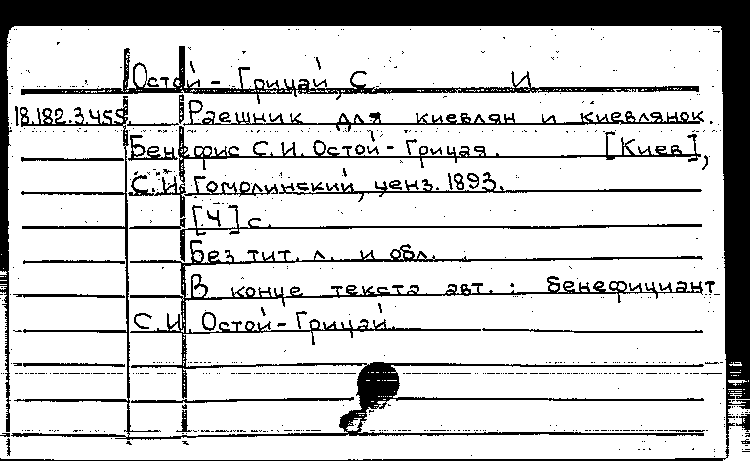 Остой - Грицай, С И
18.182.3.455. Раешник для киевлян и киевлянок.
Бенефис С. И. Остой - Грицая. [Киев],
С. И. Гомолинский, ценз. 1893.
[4] с.
Без тит. л. и обл.
В конце текста авт. : бенефициант
С. И. Остой - Грицай.